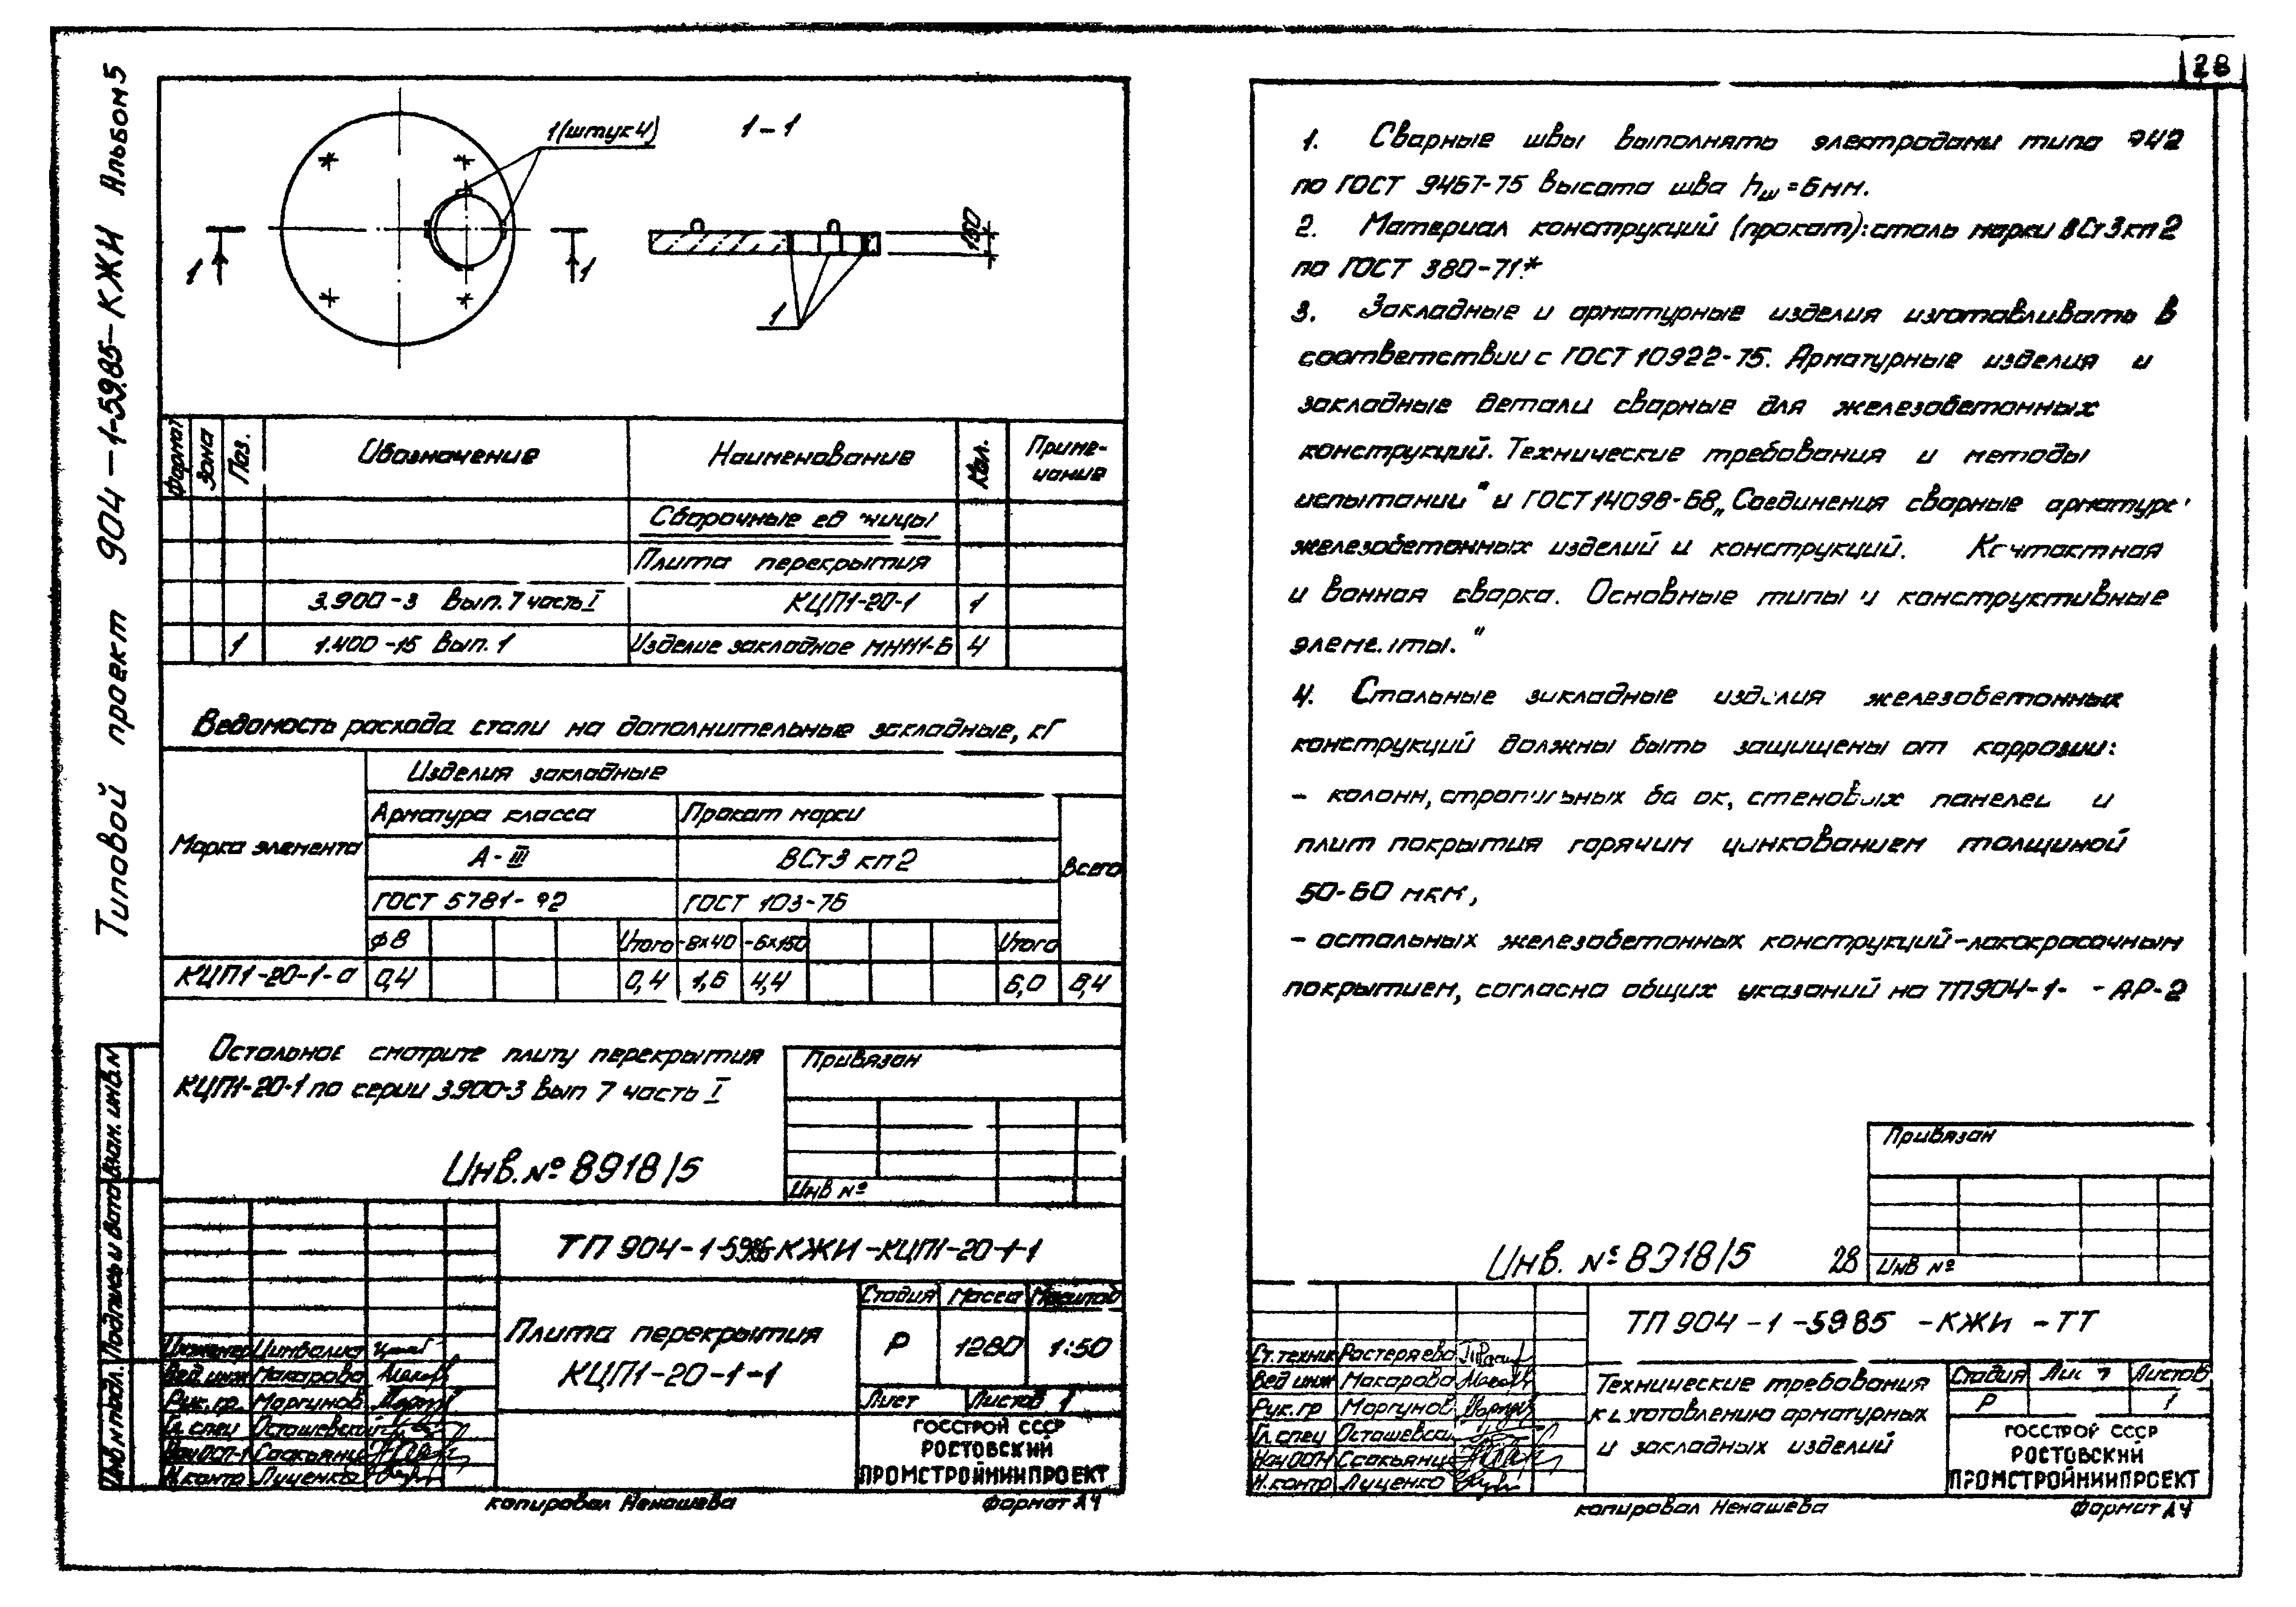 28
Типовой проект 904-1-59.85-КЖИ Альбом 5
1 (штук 4)
1-1
1
1
150
1
Формат
Зона
Поз.
Обозначение
Наименование
Кол.
Приме-
чание
Сборочные
Плита перекрытия
3.900-3 Вып. 7 часть I
КЦП1-20-1
1
1
1.400-15 Вып. 1
Изделие закладное МН111-6
4
Ведомость расхода стали на дополнительные закладные, кГ
Марка элемента
Изделия закладные
Арматура класса
Прокат марки
Всего
А-III
ВСт3 кп2
ГОСТ 5781-
ГОСТ 103-76
ф8
Итого
-8х40
-6х150
Итого
КЦП1-20-1-а
0,4
0,4
1,6
4,4
6,0
6,4
Остальное смотрите плиту перекрытия
КЦП1-20-1 по серии 3.900-3 вып 7 часть I
Привязан
Инв №
Инв. № 8918/5
ТП 904-1-59.85 КЖИ -КЦП1-20-1-1
Плита перекрытия
КЦП1-20-1-1
Стадия
Масса
Масштаб
Р
1280
1:50
Лист
Листов 1
ГОССТРОЙ СССР
РОСТОВСКИЙ
ПРОМСТРОЙНИИПРОЕКТ
Инженер Цимбалис
Вед инж Макарова
Рук. гр. Моргунов
Гл. спец Осташевский
Нач ОСП-1 Саакьянц
Н. контр Луценко
Инв № подл.
Подпись и дата
Взам. инв. №
копировал Ненашева
формат А4
1. Сварные швы выполнять электродами типа Э42
по ГОСТ 9467-75 высота шва hш = 6 мм.
2. Материал конструкций (прокат): сталь марки ВСт3кп2
по ГОСТ 380-71.*
3. Закладные и арматурные изделия изготавливать в
соответствии с ГОСТ 10922-75. Арматурные изделия и
закладные детали сварные для железобетонных
конструкций. Технические требования и методы
испытаний" и ГОСТ 14098-68 „Соединения сварные арматуры
железобетонных изделий и конструкций. Контактная
и ванная сварка. Основные типы и конструктивные
элементы."
4. Стальные закладные изделия железобетонных
конструкций должны быть защищены от коррозии:
- колонн, стропильных балок, стеновых панелей и
плит покрытия горячим цинкованием толщиной
50-60 мкм,
- остальных железобетонных конструкций-лакокрасочным
покрытием, согласно общих указаний на ТП904-1- -АР-2
Привязан
Инв №
Инв. № 8918/5
28
ТП 904-1-59.85 -КЖИ -ТТ
Технические требования
к изготовлению арматурных
и закладных изделий
Стадия
Лист
Листов
Р
1
ГОССТРОЙ СССР
РОСТОВСКИЙ
ПРОМСТРОЙНИИПРОЕКТ
Ст. техник Растеряева
Вед инж Макарова
Рук. гр Моргунов
Гл. спец Осташевский
Нач ОСП-1 Саакьянц
Н. контр Луценко
копировал Ненашева
Формат А4